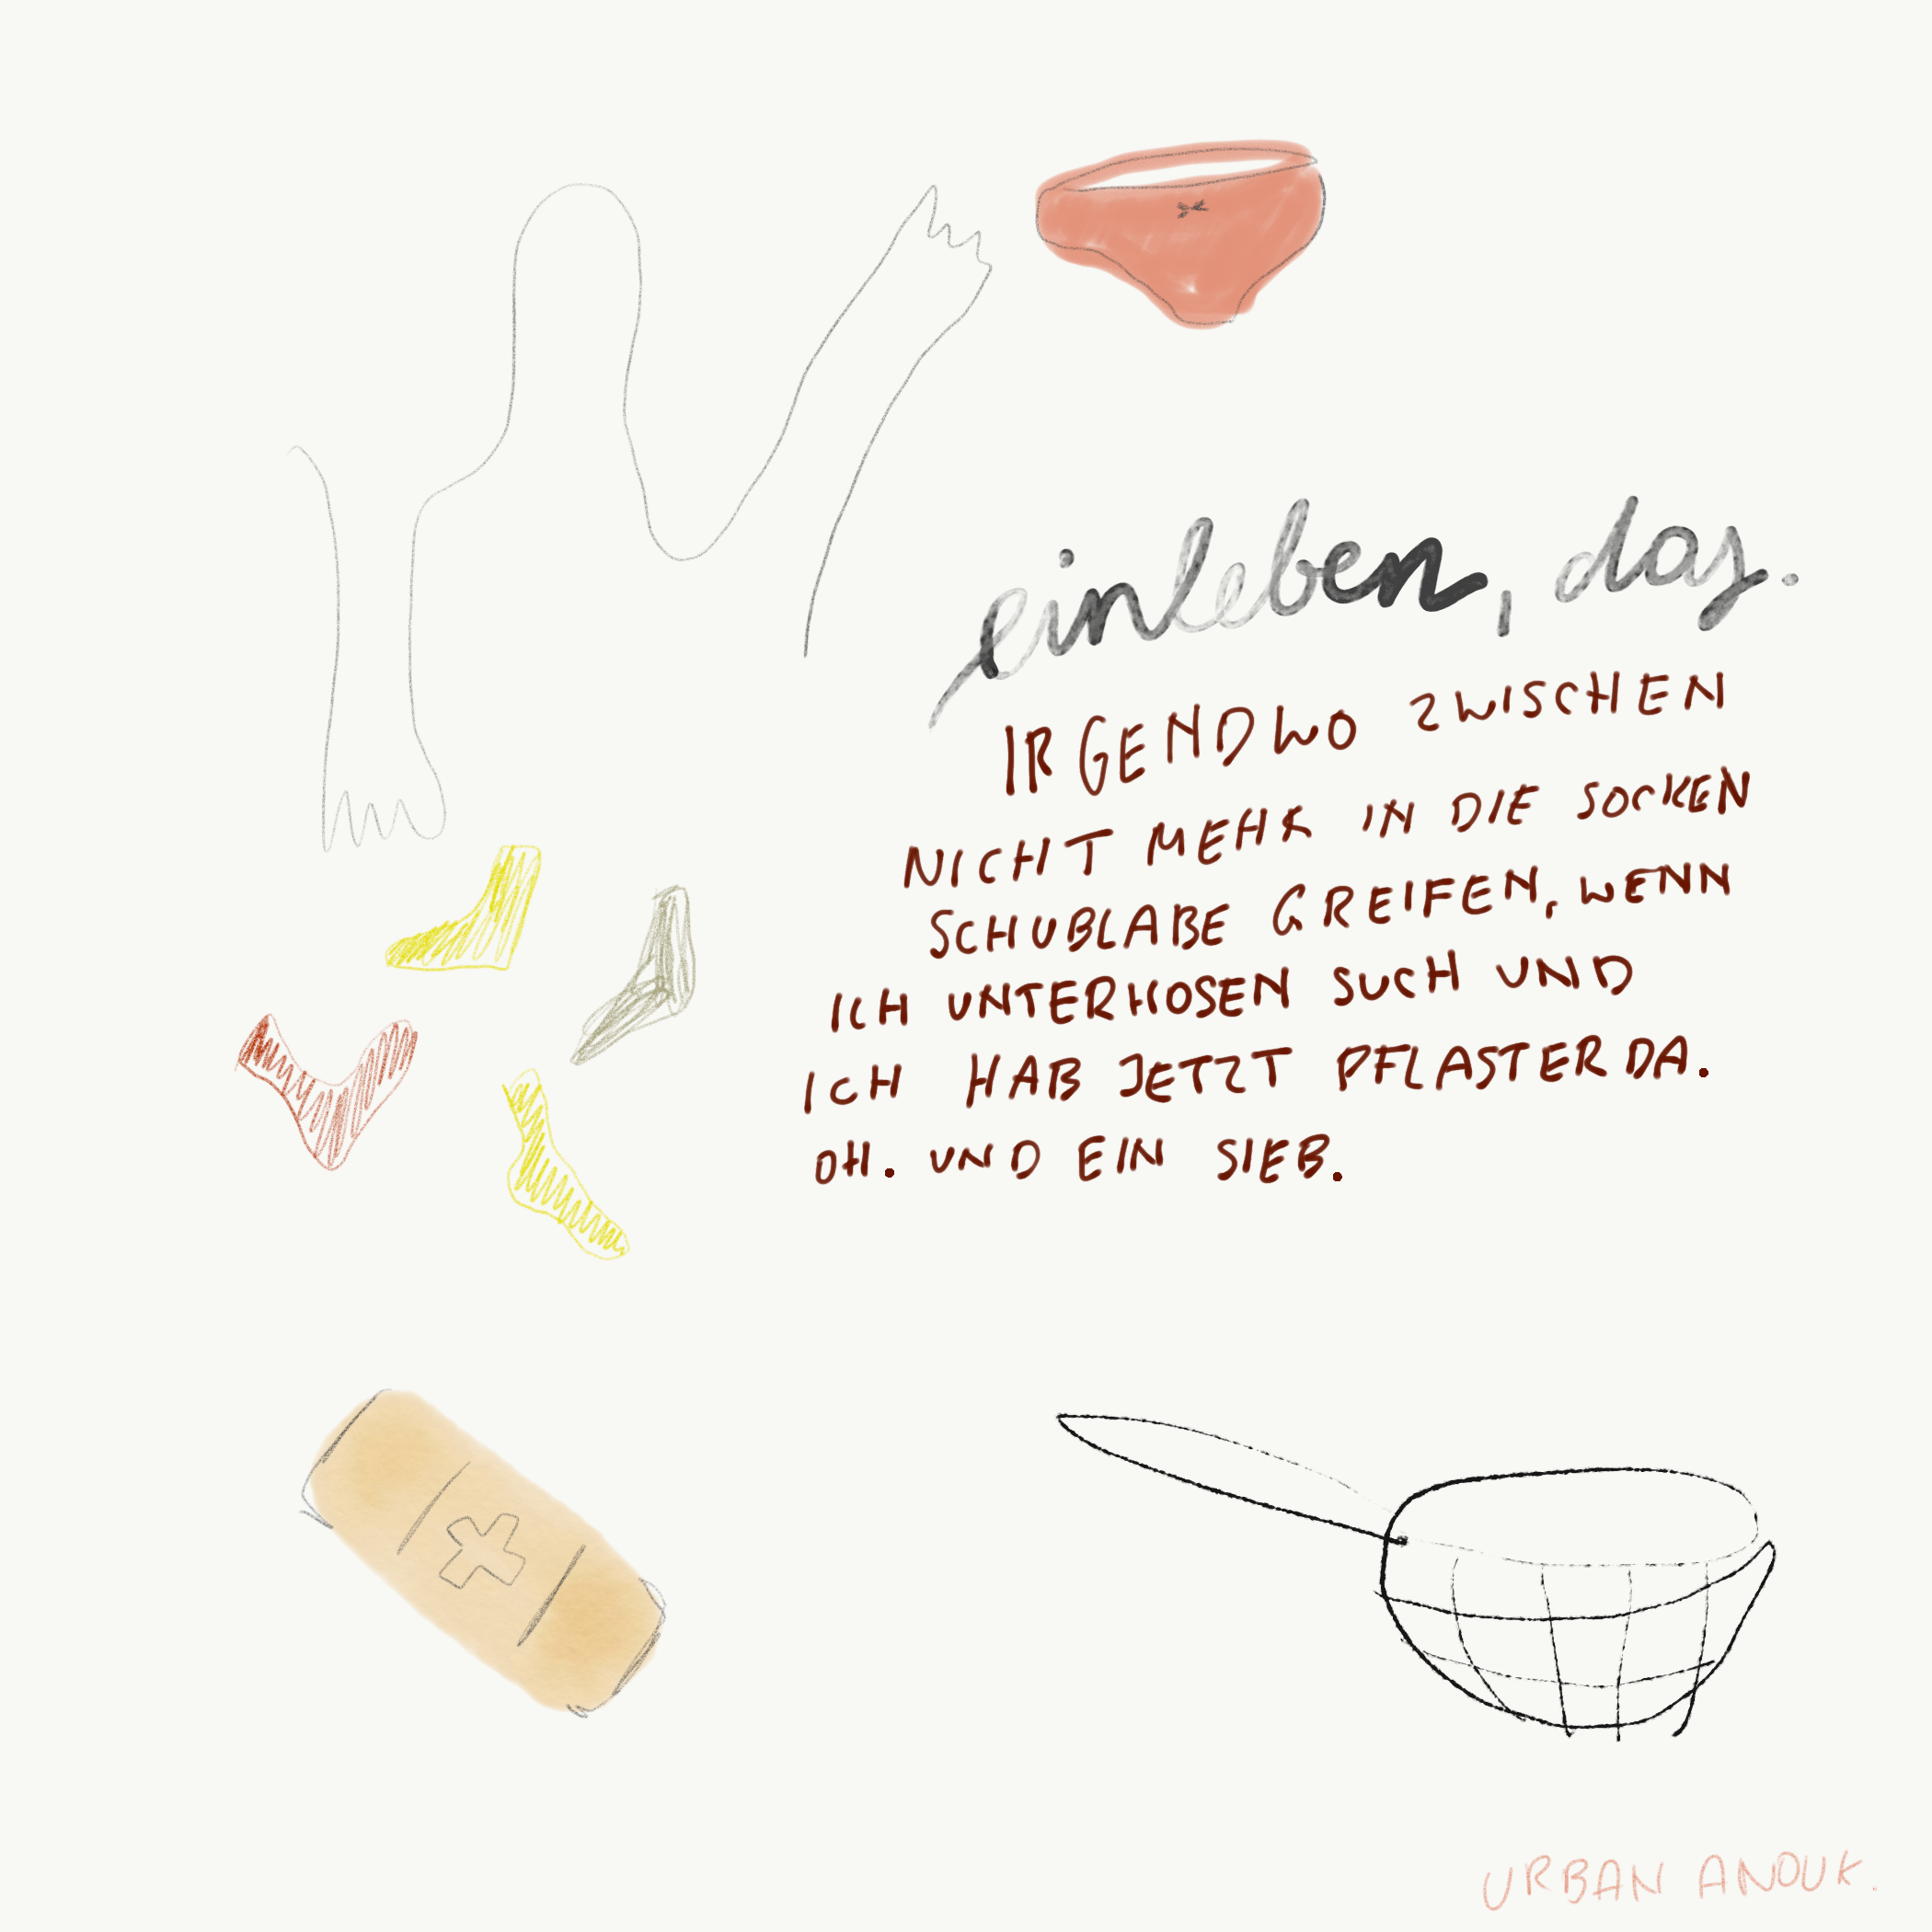 einleben, das.
IRGENDWO ZWISCHEN
NICHT MEHR IN DIE SOCKEN
SCHUBLABE GREIFEN, WENN
ICH UNTERHOSEN SUCH UND
ICH HAB JETZT PFLASTER DA.
OH. UND EIN SIEB.
URBAN ANOUK.